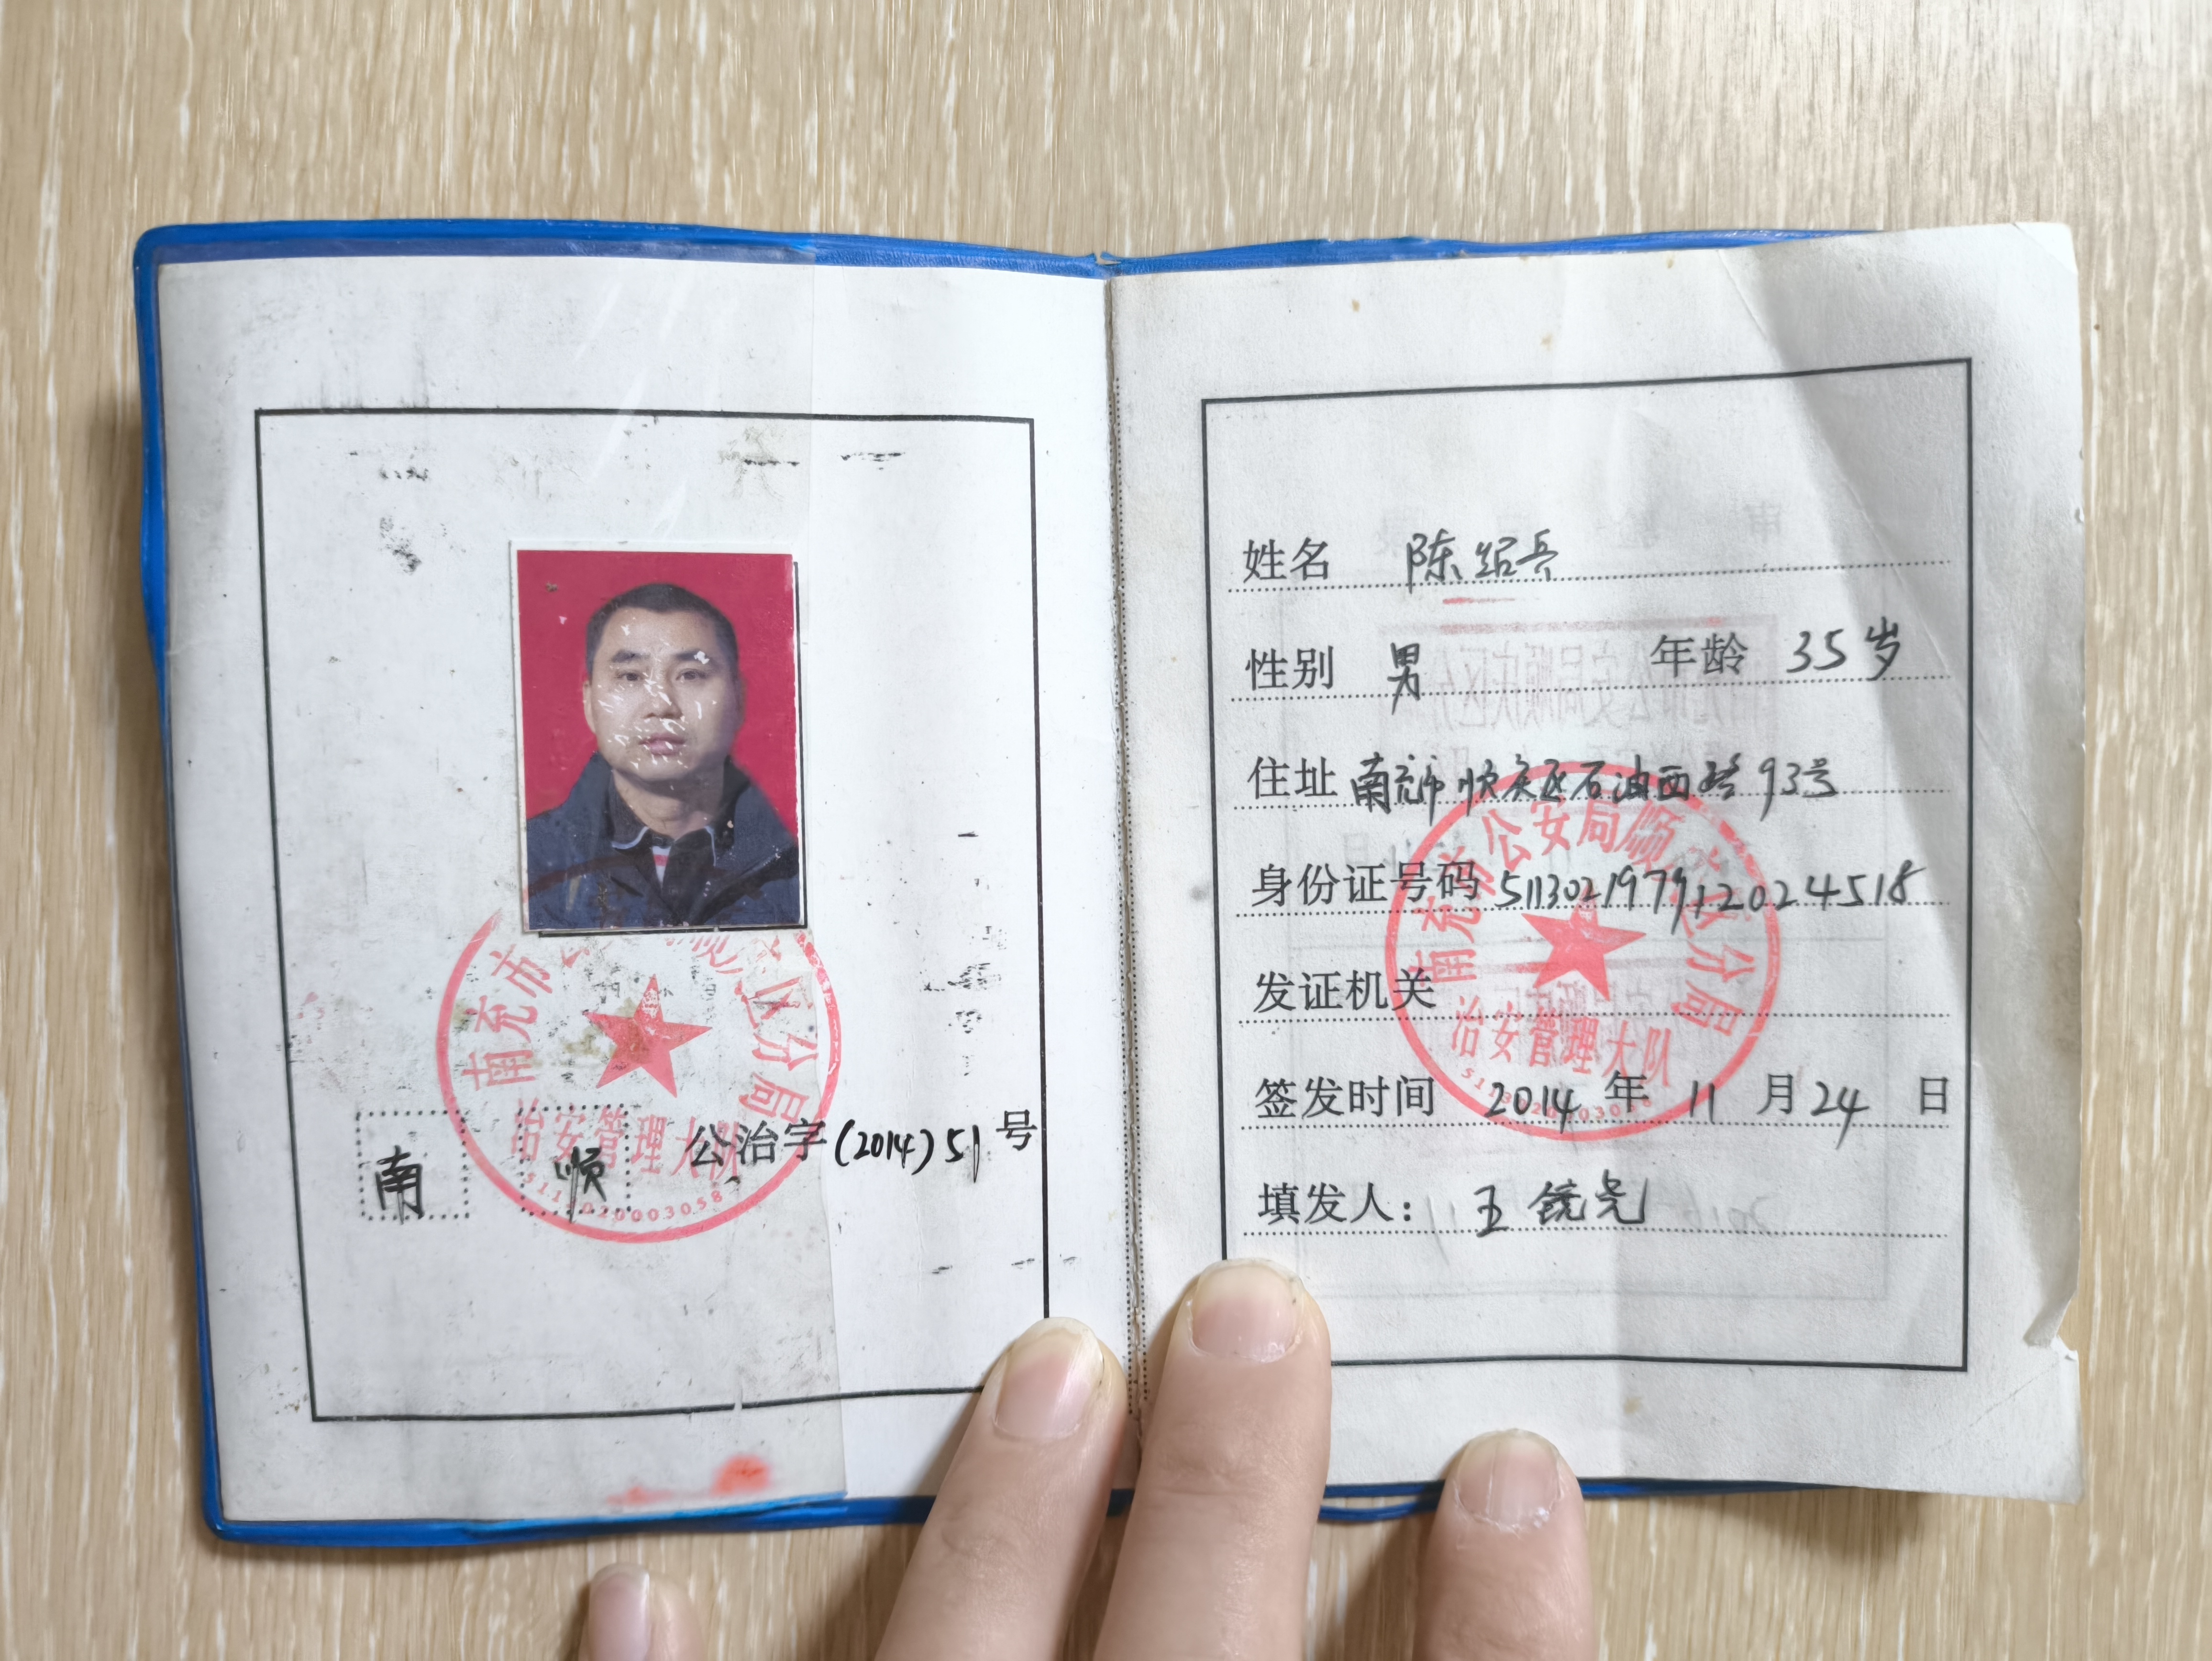 南充市 顺庆区分局
治安管理大队
南 顺 公治字(2014)51号
姓名 陈绍兵
性别 男 年龄 35岁
住址 南充市顺庆区石油西路93号
南充市公安局顺庆区分局
身份证号码 511302197912024518
发证机关
治安管理大队
签发时间 2014年11月24日
填发人: 王